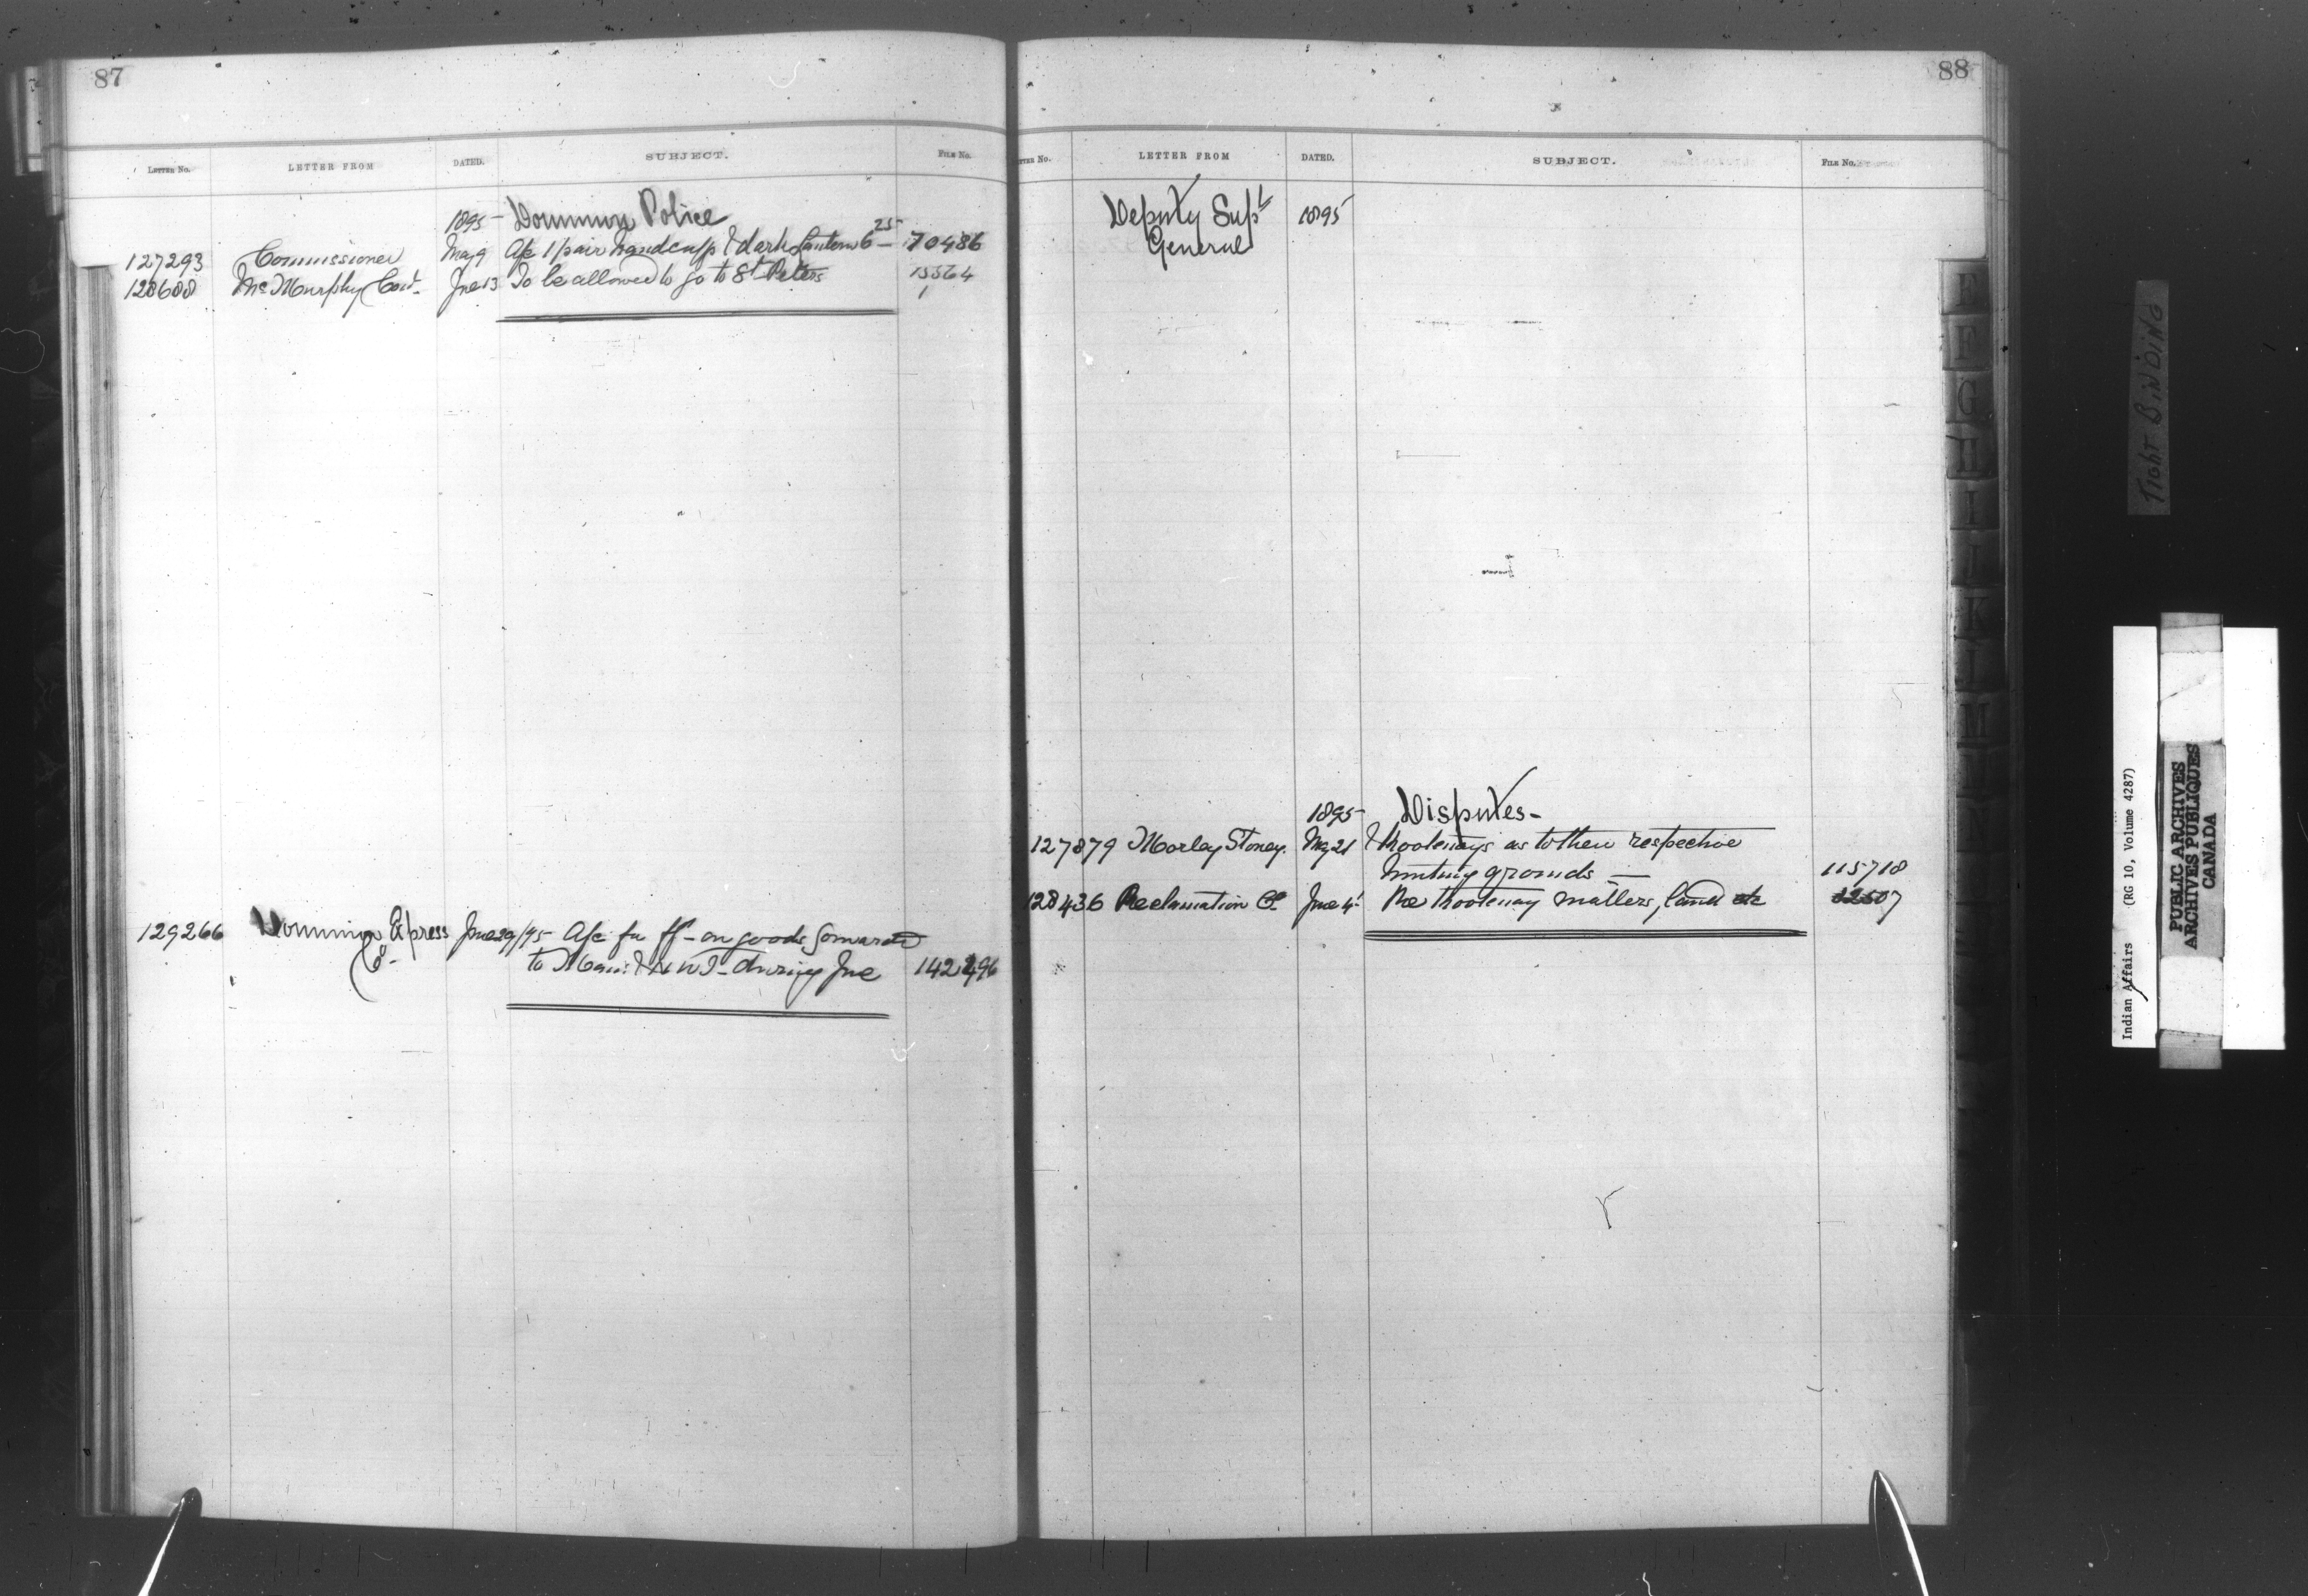 87
LETTER No. LETTER FROM DATED. SUBJECT. FILE No.
1895 Dominion Police
127293 Commissioner May 9 A/c 1 pair handcuffs & dark lantern 6 25 70486
128688 Mc Murphy Const. Jne 13 To be allowed to go to St Peters 15564
1
129266 Dominion Express Jne 29/95 A/c for ff - on goods forwarded
Co. to Man. & N W T - during Jne 142496
88
LETTER No. LETTER FROM DATED. SUBJECT. FILE No.
Deputy Supt 1895
General
1895 Disputes -
127879 Morley Stoney. May 21 & Kootenays as to their respective
hunting grounds — 115718
128436 Reclamation Co. Jne 4 Re Kootenay matters, land etc
E
F
G
H
I
J
K
L
M
TIGHT BINDING
Indian Affairs (RG 10, Volume 4287)
PUBLIC ARCHIVES
ARCHIVES PUBLIQUES
CANADA